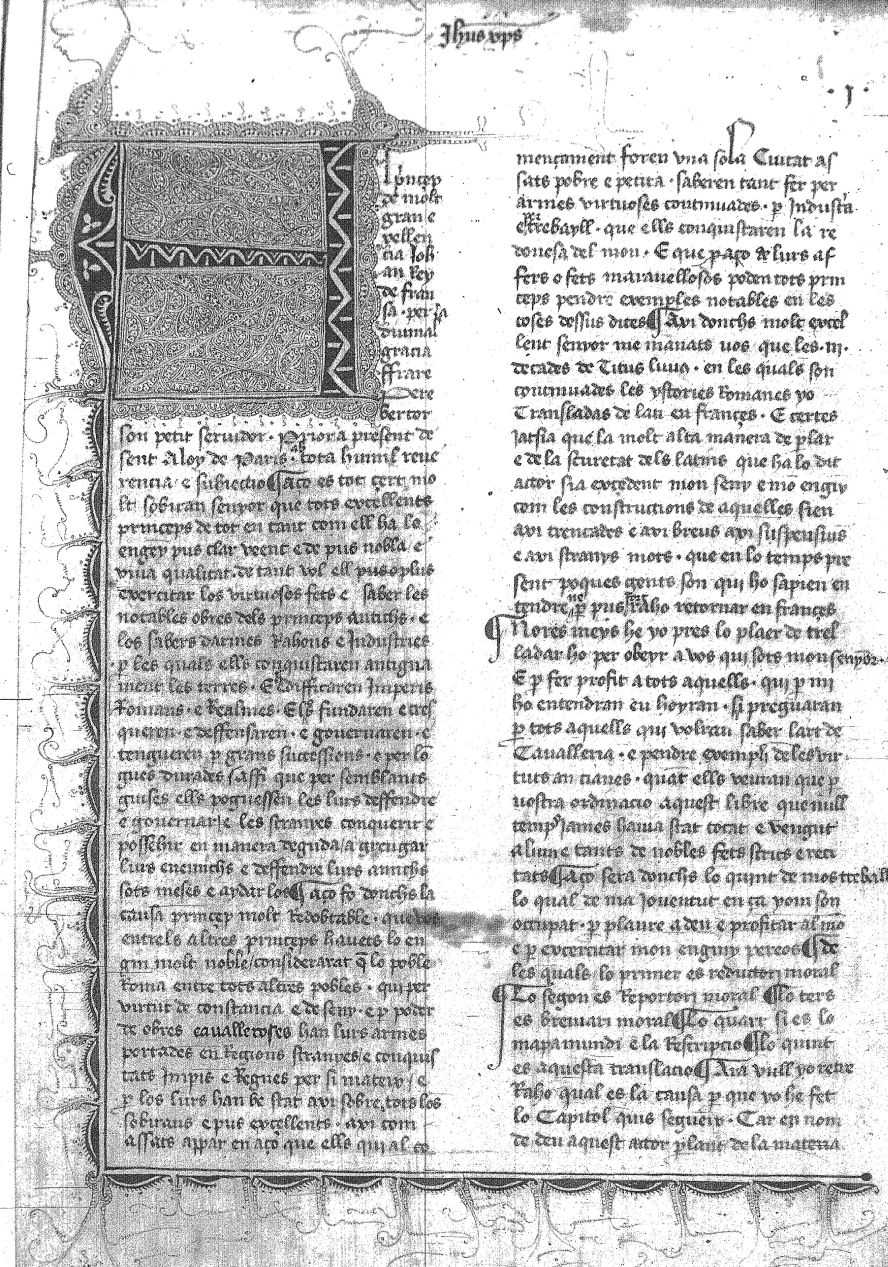 Jhus xps
· j ·
l princep
de molt
gran e
xellen
cia Joh
an Rey
de fran
sa · per la
diuinal
gracia
ffrare
Pere
bertor
son petit seruidor · Priora present de
sent Aloy de Paris · tota humil reue
rencia e subieccio ¶ aço es tot cert mo
lt sobiran senyor que tots excellents
princeps de tot en tant com ell ha lo
engey pus clar veent e de pus nobla e
viua qualitat · de tant vol ell pus o plus
exercitar los virtuosos fets e saber les
notables obres dels princeps antichs · e
los sabers darmes Rahons e Industries
· p les quals ells conquistaren antigua
ment les terres · E edifficaren Imperis
Romans · e Realmes · Els fundaren e cres
queren · e deffensaren · e gouernaren · e
tengueren p grans succession s · e per lo
gues durades / Affi que per semblants
guises ells poguessen les lurs deffendre
e gouernar / e les stranyes conquerir e
possehir en manera deguda / a greugar
lurs enemichs e deffendre lurs amichs
sots meses e aydar los ¶ aço fo donchs la
causa princep molt Redobtable · que vos
entrels altres princeps hauets lo en
gin molt noble / considerarat q lo poble
Roma entre tots altres pobles · qui per
virtut de constancia e de seny · e p poder
de obres caualleroses han lurs armes
portades en Regions stranyes / e conquis
tats Impis e Regnes per si mateix / e
p los lurs han be stat axi sobre tots los
sobirans e pus excellents · axi com
assats appar en aço que ells qui al co
mençament foren vna sola Ciutat as
sats pobre e petita · saberen tant fer per
armes virtuoses continuades · p Industria
e trebayll · que ells conquistaren la re
donesa del mon · E que p aço de lurs af
fers o fets marauellosos poden tots prin
ceps pendre exemples notables en les
coses dessus dites ¶ Axi donchs molt excel
lent senyor me manats vos que les · iii ·
decades de Titus liuius · en les quals son
continuades les ystories Romanes yo
Transladas de lati en frances · E certes
Jatsia que la molt alta manera de plar
e de la scuretat dels latins que ha lo dit
actor sia excedent mon seny e mo enginy
com les construccions de aquelles sien
axi trencades e axi breus axi suspensius
e axi stranys mots · que en lo temps pre
sent poques gents son qui ho sapien en
tendre ne p pus fort raho retornar en frances
¶ Nores meys he yo pres lo plaer de trel
ladar ho per obeyr a vos qui sots mon senyor ·
E p fer profit a tots aquells · qui p mi
ho entendran eu hoyran · si preguaran
p tots aquells qui volran saber lart de
Caualleria · e pendre exempli de les vir
tuts ancianes · quar ells veuran que p
uostra ordinacio aquest libre que null
temps James hauia stat tocat e vengut
a lum e tants de nobles fets scrits e reci
tats ¶ Aço sera donchs lo quint de mos treballs
lo qual de ma Jouentut en ça yom son
occupat · p plaure a deu e profitar al mo
e p exercitar mon enginy pereos ¶ de
les quals lo primer es reductori moral
¶ Lo segon es Reportori moral ¶ lo ters
es breuiari moral ¶ Lo quart si es lo
mapamundi e la Rescripcio ¶ lo quint
es aquesta translacio ¶ Ara vull yo retre
Raho qual es la causa p que yo he fet
lo Capitol quis segueix · Car en nom
de deu aquest actor plant de la materia